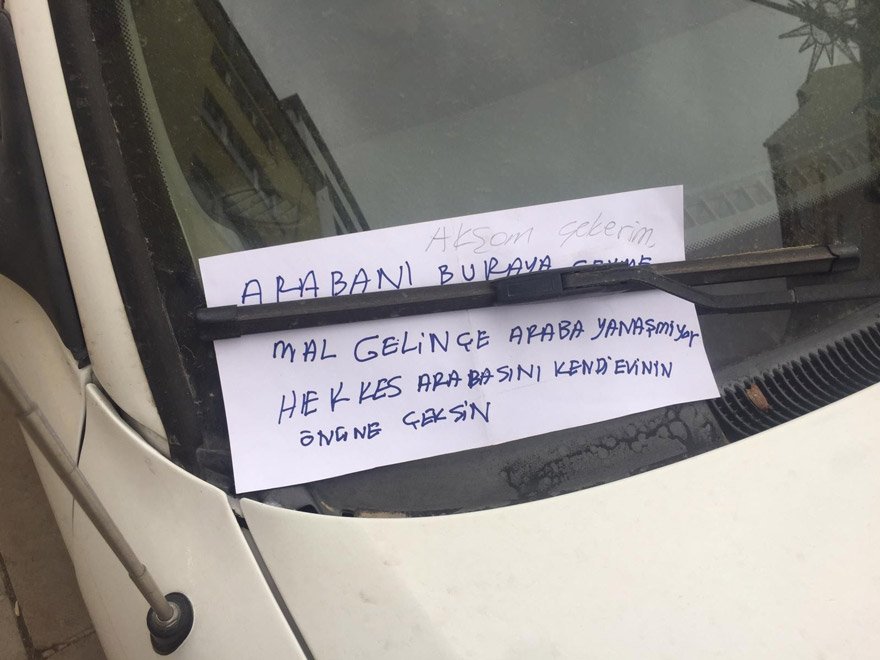 Akşam çekerim.
ARABANI BURAYA ÇEKME
MAL GELİNÇE ARABA YANAŞMIYor
HEKKES ARABASINI KENDİ EVİNİN
ÖNÜNE ÇEKSİN